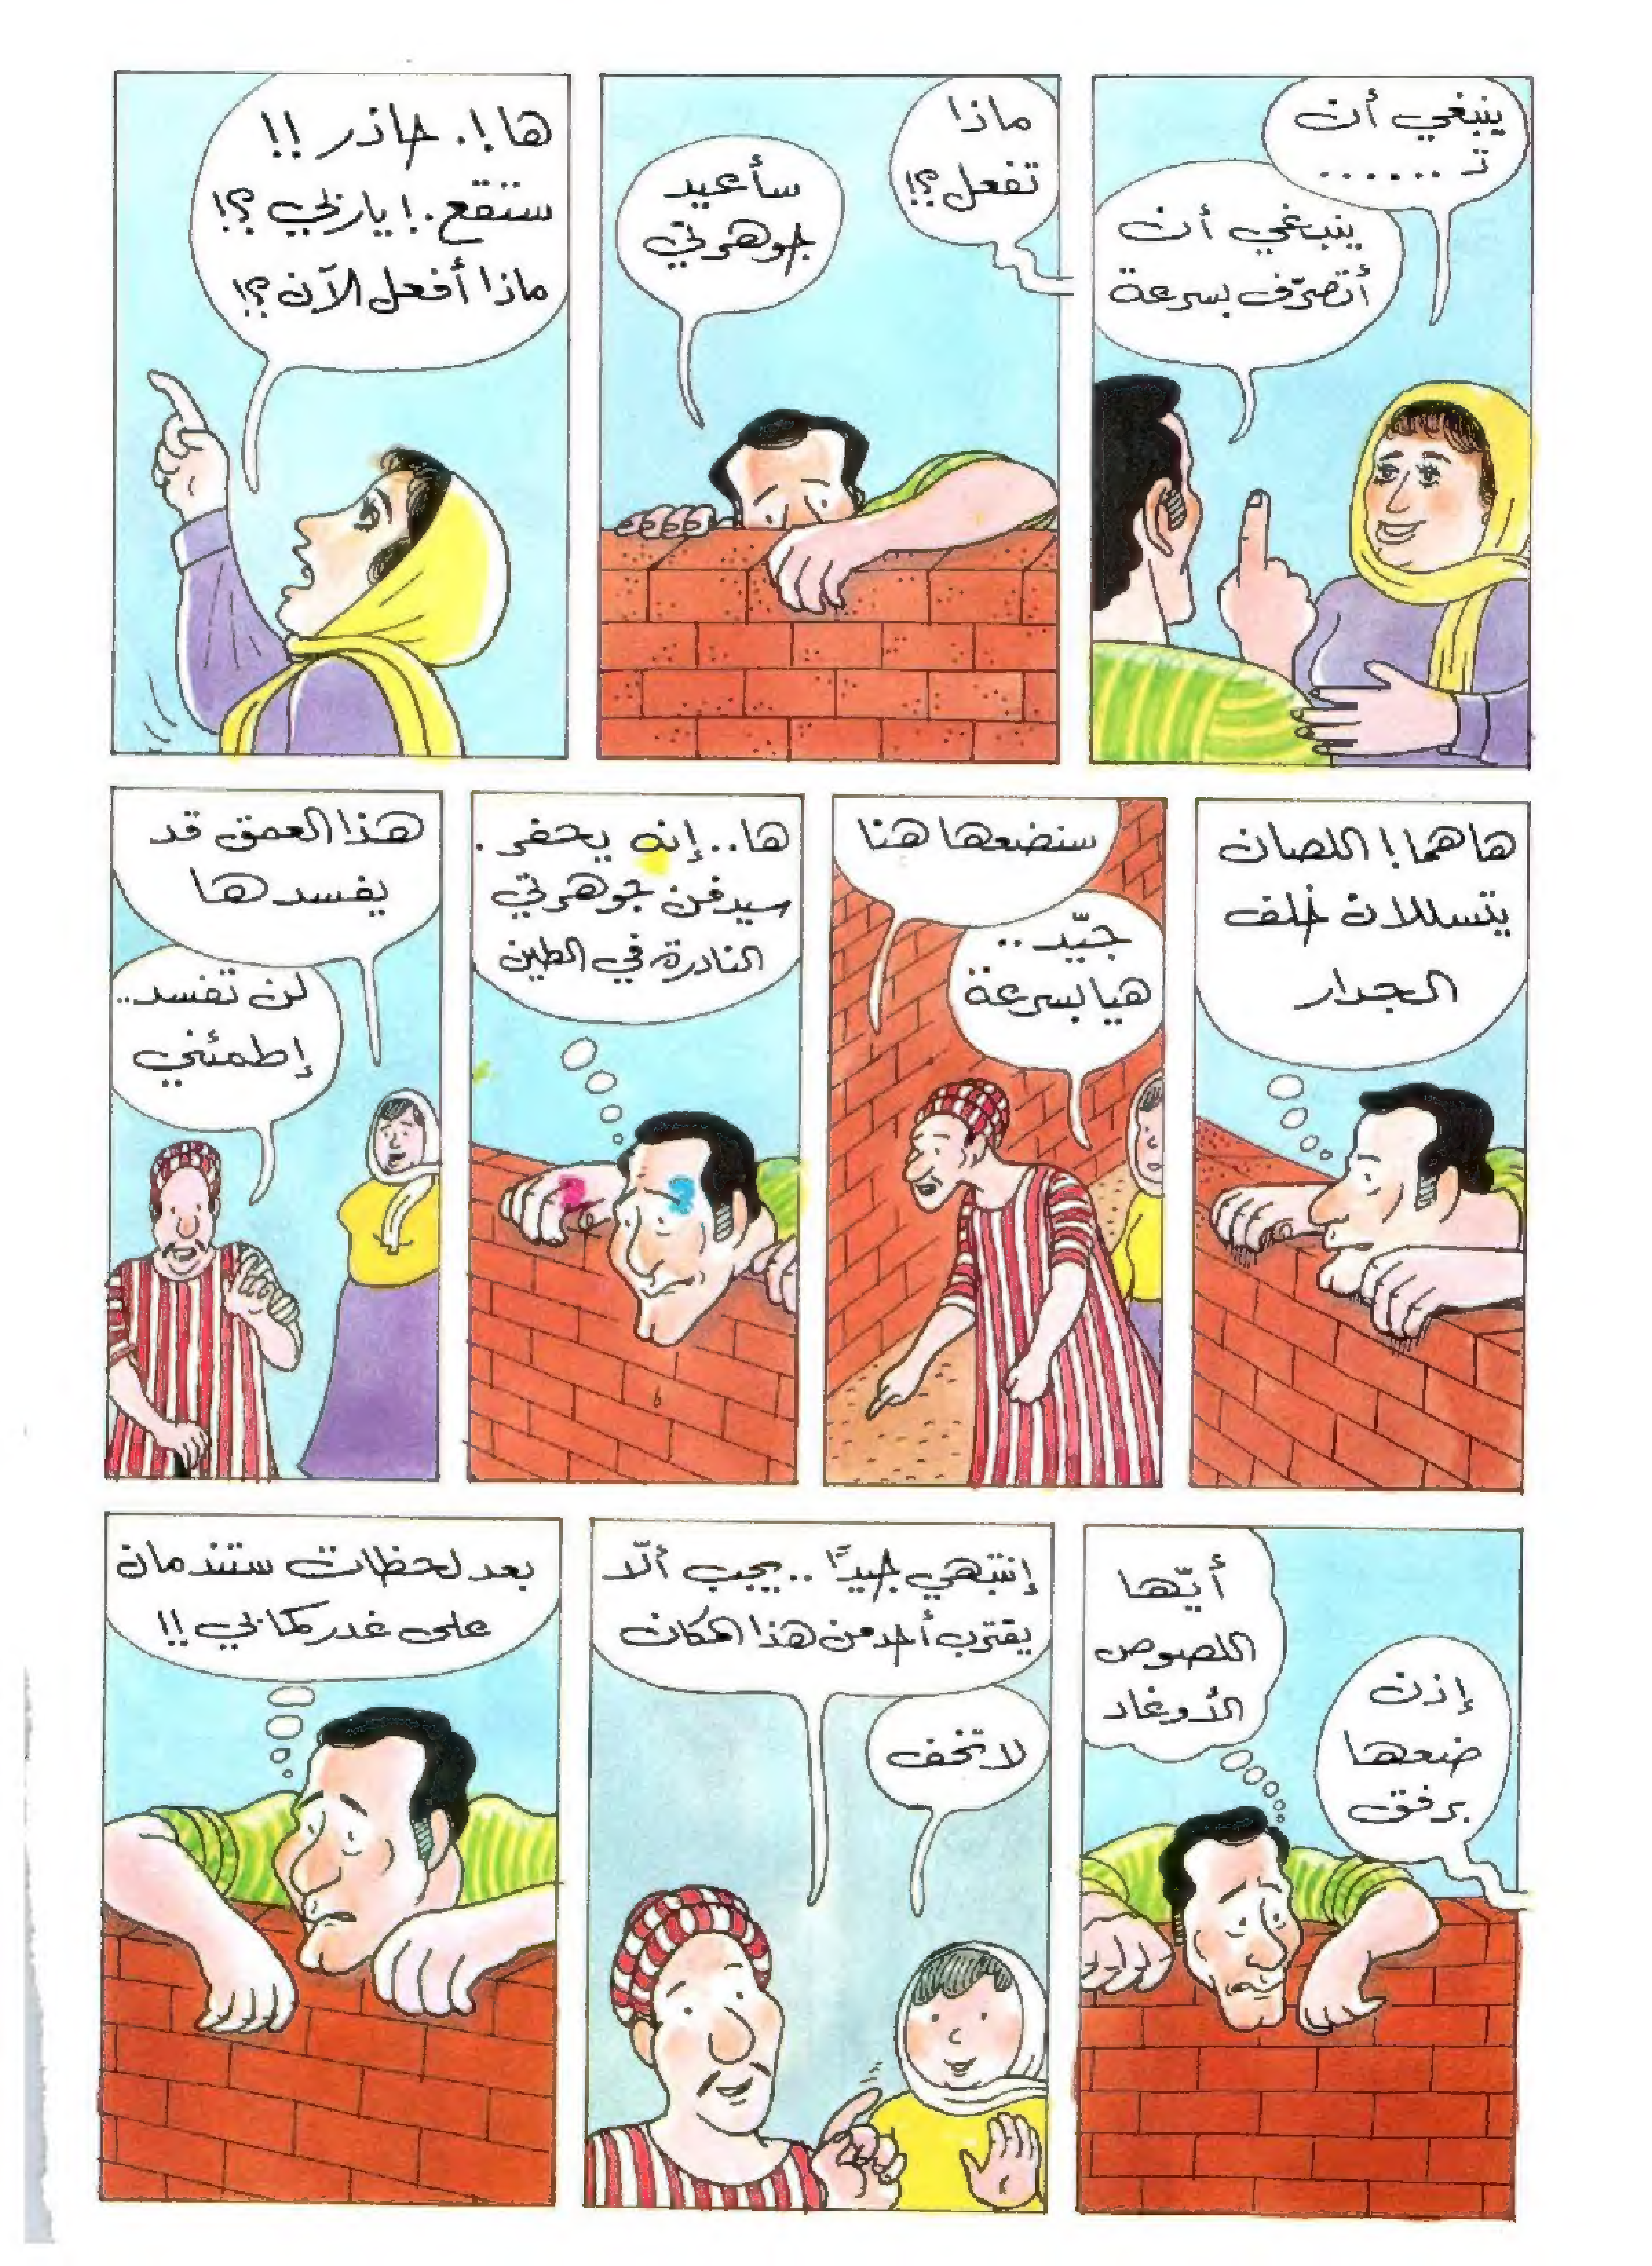 ينبغي أن
تـ ......
ينبغي أن
أتصرّف بسرعة
ماذا
تفعل؟!
سأعيد
جوهرتي
ها!. حاذر!!
ستقع.! ياربّي؟!
ماذا أفعل الآن؟!
هاهما! اللصان
يتسللان خلف
الجدار
سنضعها هنا
جيّد..
هيا بسرعة
ها.. إنه يحفر.
سيدفن جوهرتي
النادرة في الطين
هذا العمق قد
يفسدها
لن تفسد..
إطمئني
أيّها
اللصوص
الأوغاد
إذن
ضعها
برفق
إنتبهي جيدًا.. يجب ألّا
يقترب أحد من هذا المكان
لا تخف
بعد لحظات ستندمان
على غدركما بي!!